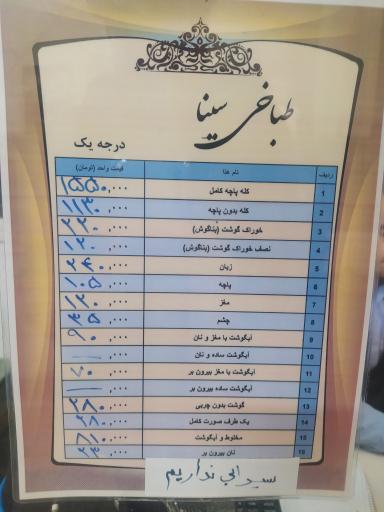 طباخی سینا
درجه یک
ردیف نام غذا قیمت واحد (تومان)
1 کله پاچه کامل ۱۵۵۰,۰۰۰
2 کله بدون پاچه ۱۱۳۰,۰۰۰
3 خوراک گوشت (بناگوش) ۲۲۰,۰۰۰
4 نصف خوراک گوشت (بناگوش) ۱۲۰,۰۰۰
5 زبان ۲۴۰,۰۰۰
6 پاچه ۱۰۵,۰۰۰
7 مغز ۱۳۰,۰۰۰
8 چشم ۳۵,۰۰۰
9 آبگوشت با مغز و نان ۹۰,۰۰۰
10 آبگوشت ساده و نان ,۰۰۰
11 آبگوشت با مغز بیرون بر ۷۰,۰۰۰
12 آبگوشت ساده بیرون بر ,۰۰۰
13 گوشت بدون چربی ۲۸۰,۰۰۰
14 یک طرف صورت کامل ۳۸۰,۰۰۰
15 مخلوط و آبگوشت ۸۱۰,۰۰۰
16 نان بیرون بر ,۰۰۰
سیرابی نداریم